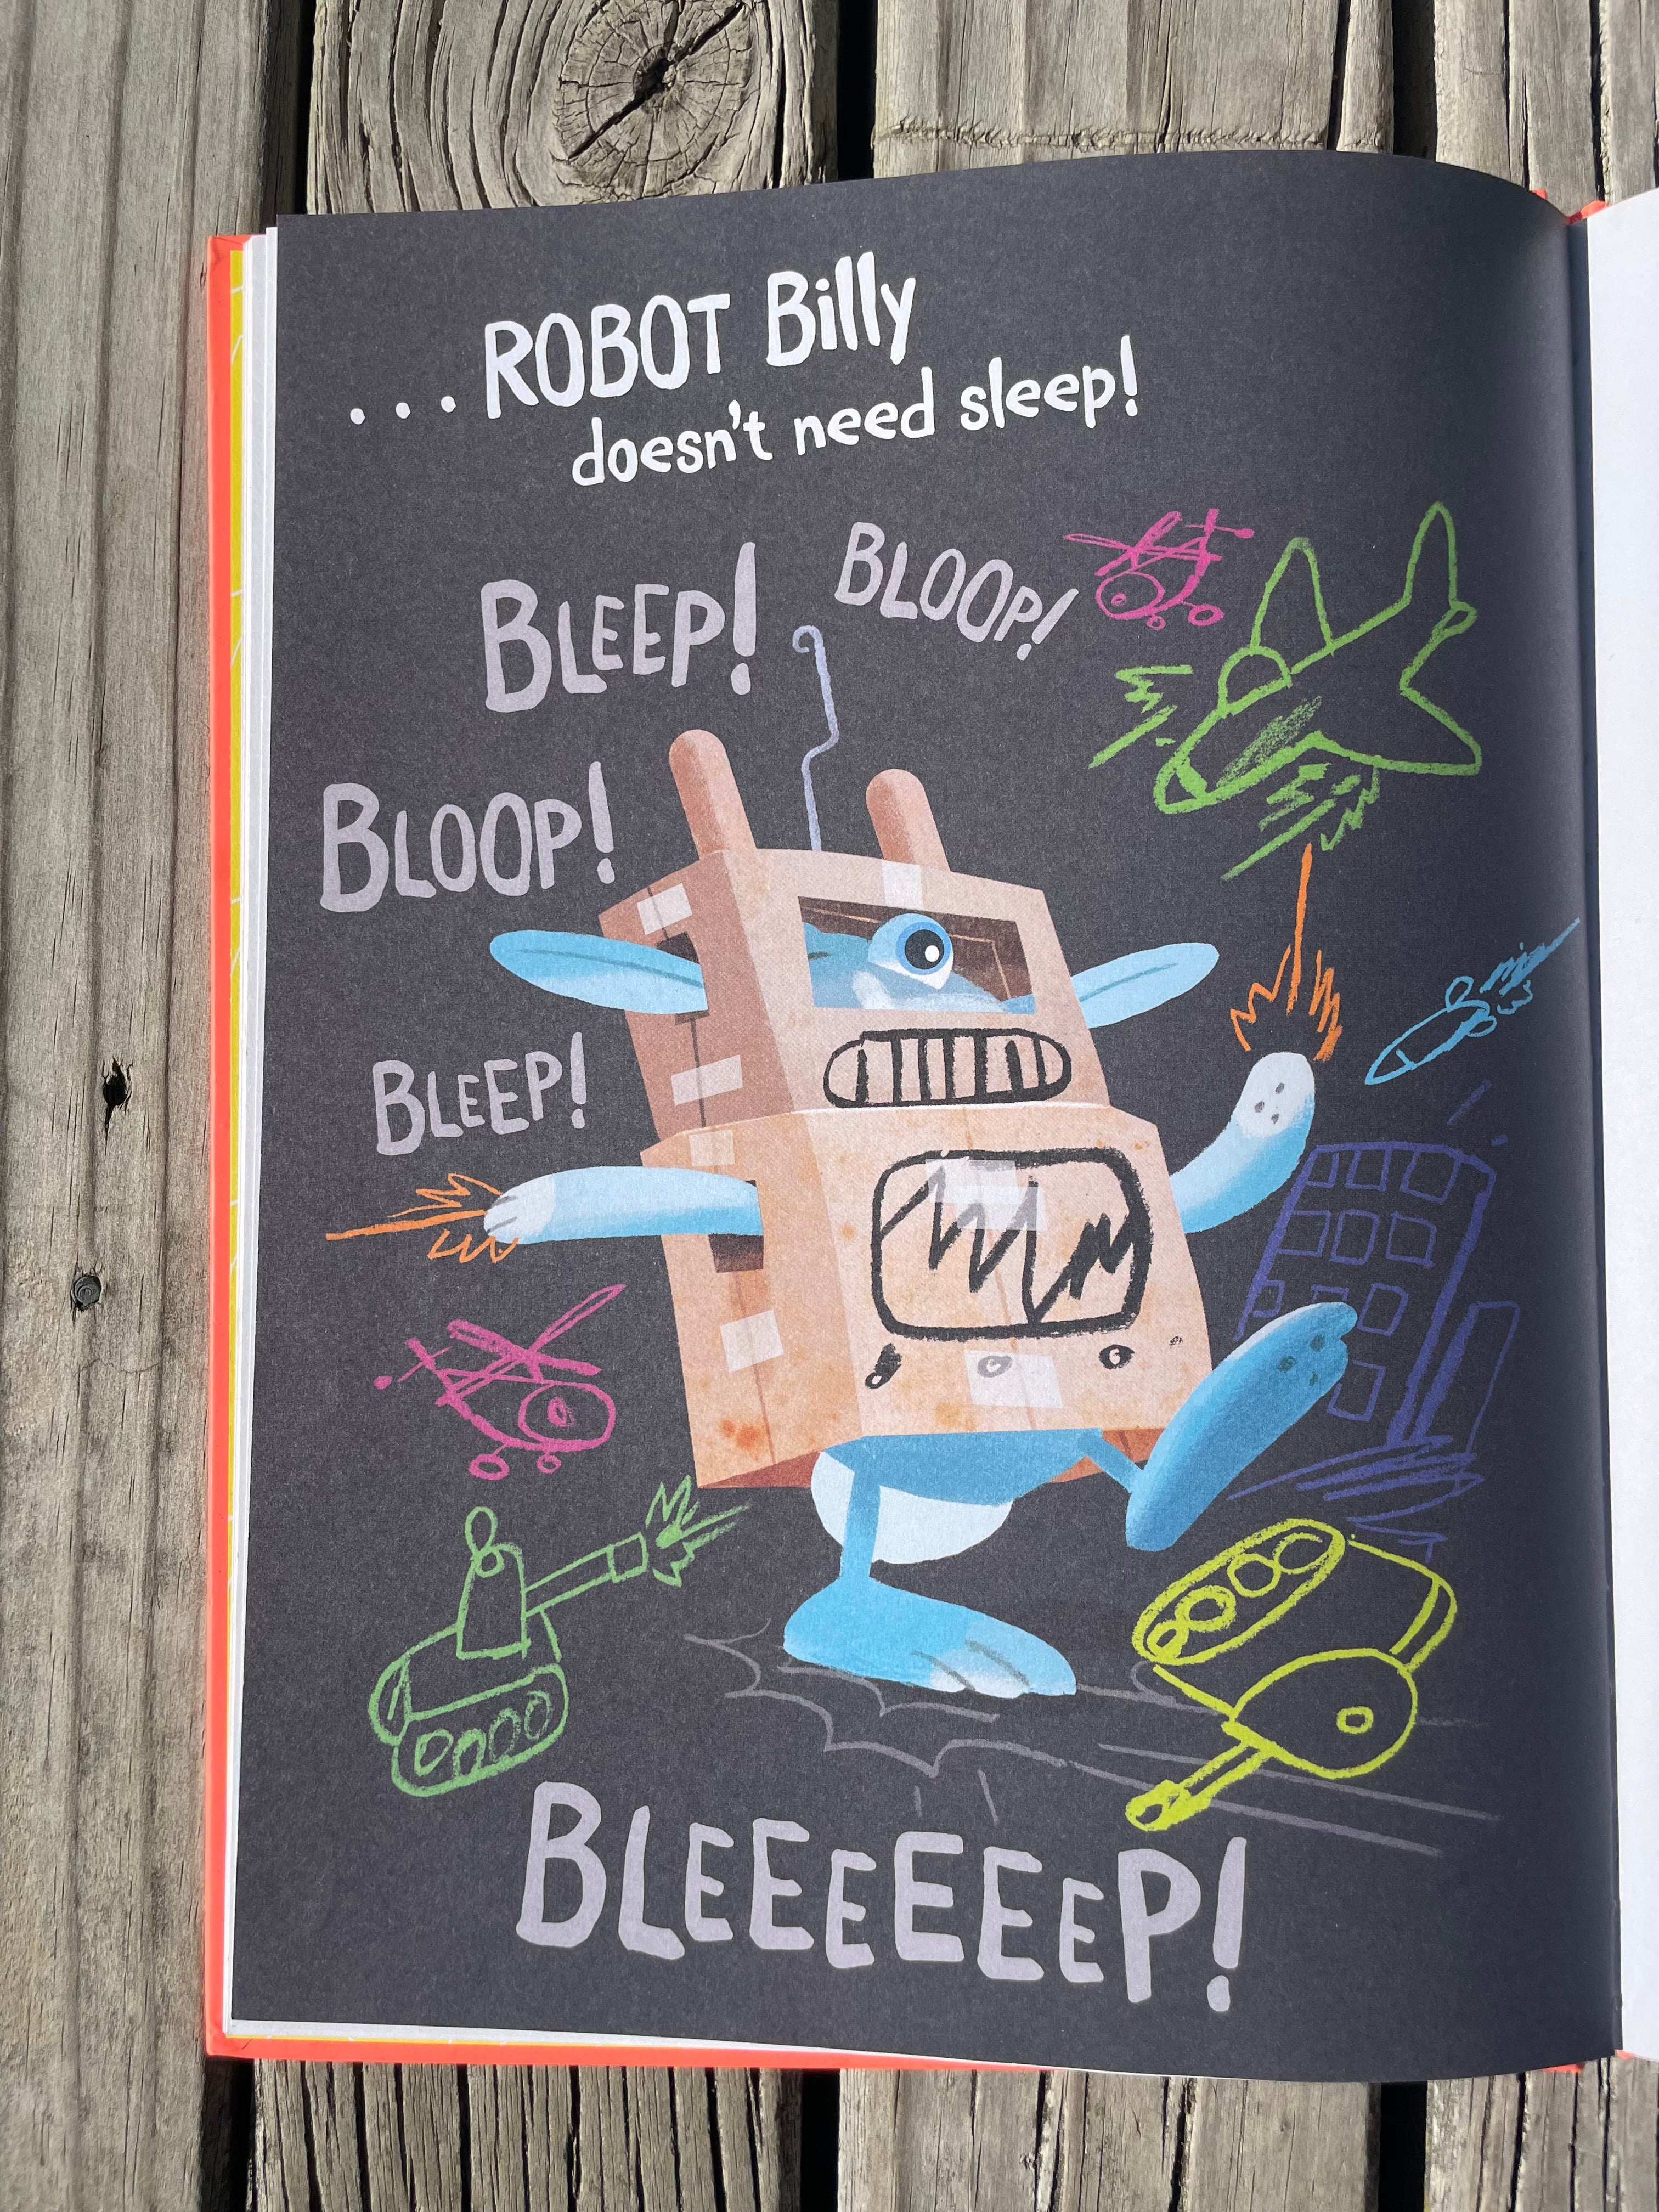 ...ROBOT Billy
doesn't need sleep!
BLEEP!
BLOOP!
BLOOP!
BLEEP!
BLEEEEEEP!